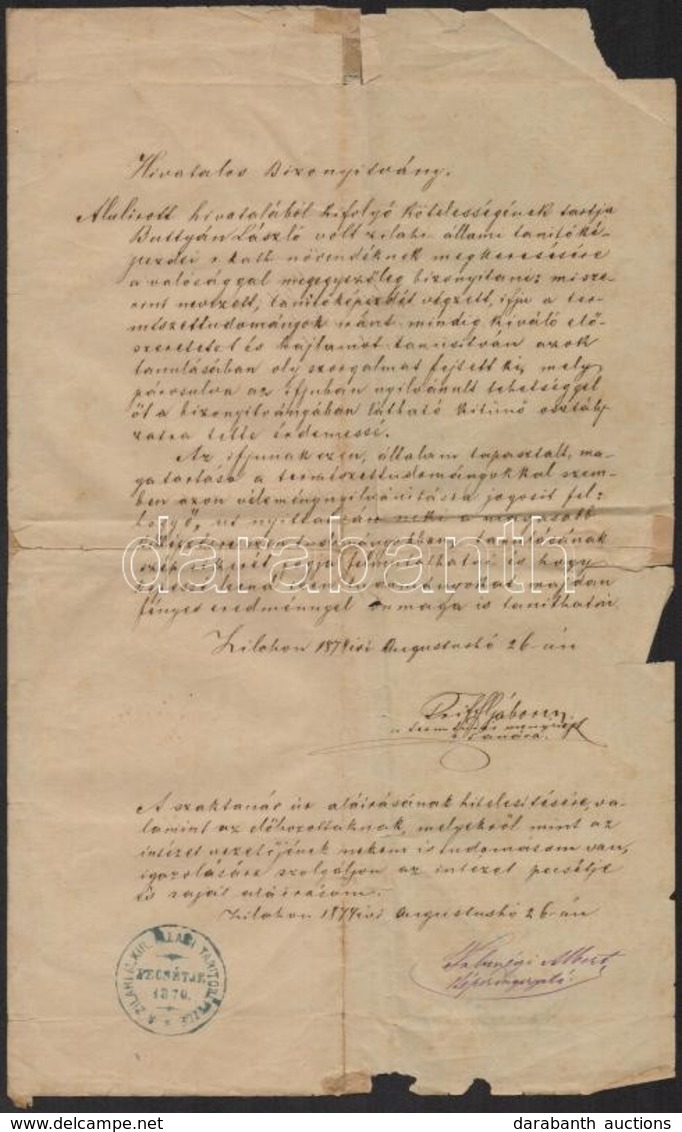 Hivatalos Bizonyitvány.
Alulirott hivatalából kifolyó kötelességének tartja
Battyán László volt zilahi állami tanitóké-
pezdei r. kath. növendéknek megkeresésére
a valósággal megegyezőleg bizonyitani: misze-
rint nevezett, tanitóképezdét végzett, ifju a ter-
mészettudományok iránt mindig kiváló elő-
szeretetet és hajlamot tanusitván azok
tanulásában oly szorgalmat fejtett ki, mely
párosulva az ifjuban nyilvánult tehetséggel
őt a bizonyitványában látható kitünő osztály-
zatra tette érdemessé.
Az ifjunak ezen, általam tapasztalt, ma-
gatartása a természettudományokkal szem-
ben azon véleménynyilvánitásra jogosit fel:
hogy, neki a
tanulásának
fogja és hogy
majdan
fényes eredménnyel önmaga is tanithatni.
Zilahon 1874iki Augustushó 26-án
Gábor
tanára.
A szaktanár úr aláirásának hitelesitésére, va-
lamint az előhozottaknak, melyekről mint az
intézet vezetőjének nekem is tudomásom van,
igazolására szolgáljon az intézet pecsétje
és saját aláirásom.
Zilahon 1874iki Augustushó 26-án
Albert
A ZILAHI M. KIR. ÁLLAMI TANITÓKÉPEZDE
PECSÉTJE
1870.
darabanth
darabanth auctions